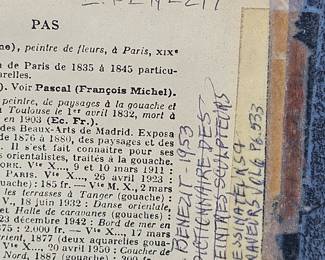 PAS
ne), peintre de fleurs, à Paris, XIXe
n de Paris de 1835 à 1845 particu-
arelles.
). Voir Pascal (François Michel).
peintre, de paysages à la gouache et
Toulouse le 1er avril 1832, mort à
en 1903 (Ec. Fr.).
des Beaux-Arts de Madrid. Exposa
de 1876 à 1880, des paysages et des
. Il s'est fait connaître pour ses
s orientalistes, traités à la gouache.
Vte X..., 9 et 10 mars 1911 :
ORK. Vte X..., 26 avril 1923 :
gouache) : 185 fr. — Vte M. X., 2 mars
les terrasses à Tanger (gouache) :
V., 18 juin 1932 : Danse orientale,
et Halle de caravanes (gouaches) :
23 décembre 1942 : Bord de mer en
375 : 2.000 fr. — X..., 17 mars
rient, 1877 (deux aquarelles goua-
te X..., 20 avril 1950 : Coucher de
Nord, 1887 (gouache) : 30.000
BENEZIT-1953
DICTIONAIRE DES
PEINTRES SCULPTEURS
ESSINATEURS &
RAVEURS VOL 6 Pg. 533